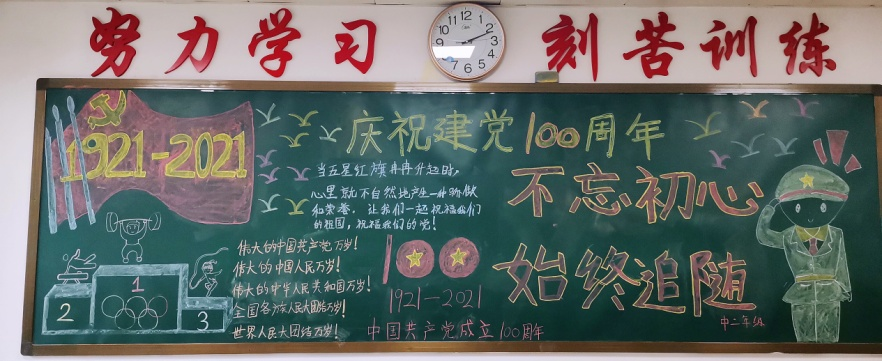 努力学习 刻苦训练
1921-2021
庆祝建党100周年
当五星红旗冉冉升起时，
心里就不自然地产生一种骄傲
和荣誉。让我们一起祝福我们
的祖国，祝福我们的党！
不忘初心
始终追随
伟大的中国共产党万岁！
伟大的中国人民万岁！
伟大的中华人民共和国万岁！
全国各族人民大团结万岁！
世界人民大团结万岁！
100
1921-2021
中国共产党成立100周年
中二年级
1
2
3